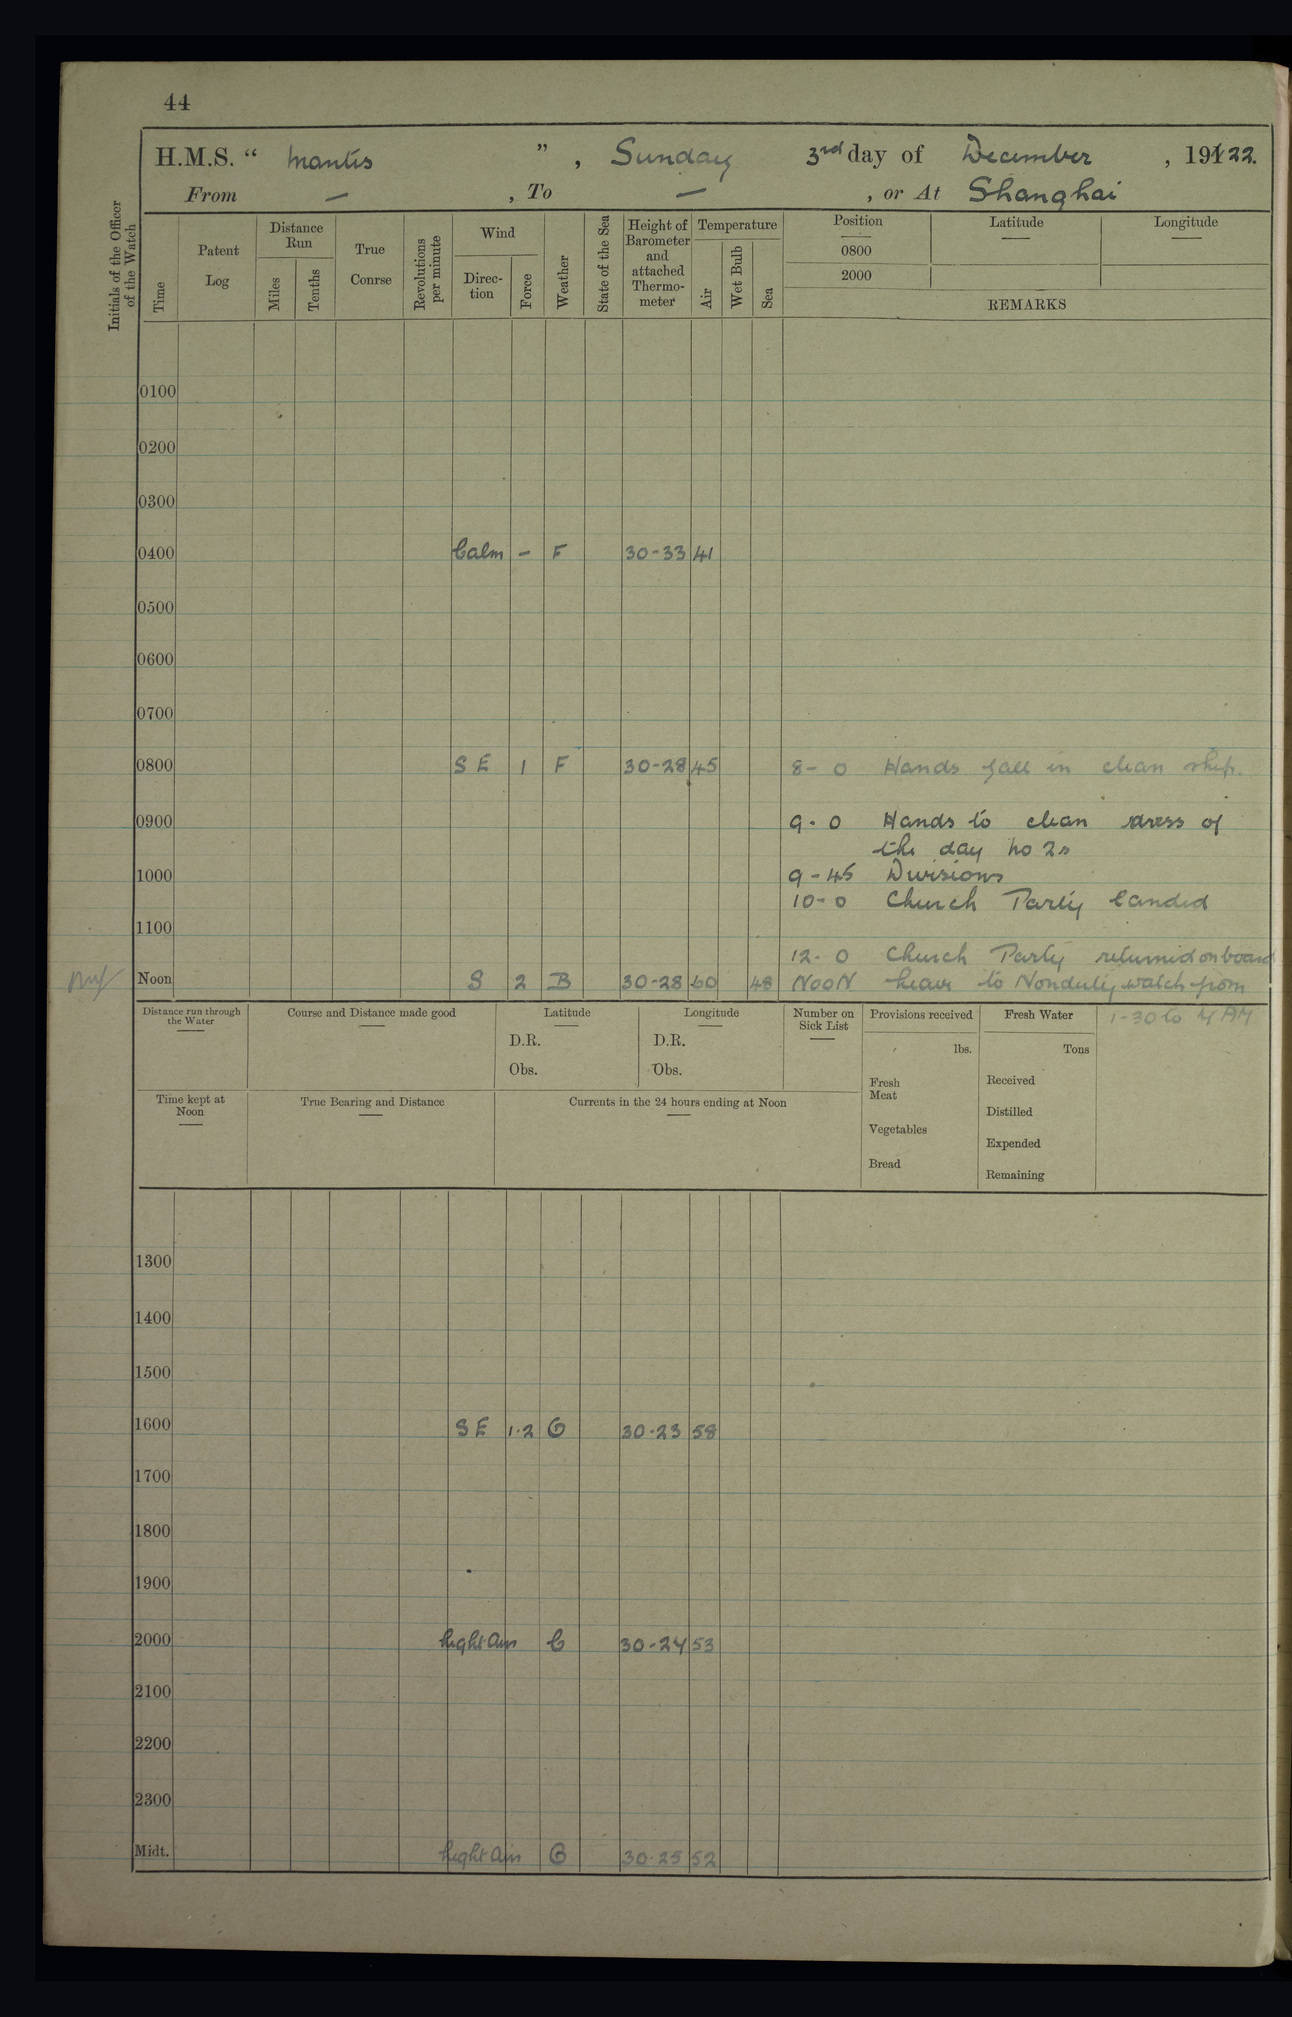 44
H.M.S. “ Mantis ” , Sunday 3rd day of December , 19122.
From — , To — , or At Shanghai
Initials of the Officer of the Watch
Time
Patent Log
Distance Run
Miles
Tenths
True Conrse
Revolutions per minute
Wind
Direc- tion
Force
Weather
State of the Sea
Height of Barometer and attached Thermo- meter
Temperature
Air
Wet Bulb
Sea
Position
0800
2000
Latitude
Longitude
REMARKS
0100
0200
0300
0400 Calm – F 30-33 41
0500
0600
0700
0800 SE 1 F 30-28 45 8-0 Hands fall in clean ship.
0900 9-0 Hands to clean dress of
the day no 2s
1000 9-45 Divisions
10-0 Church Party landed
1100
12-0 Church Party returned on board
Noon S 2 B 30-28 60 48 NOON leave to Nonduty watch from
1-30 to 7 AM
Distance run through the Water
Course and Distance made good
Latitude
D.R.
Obs.
Longitude
D.R.
Obs.
Number on Sick List
Provisions received
lbs.
Fresh Meat
Vegetables
Bread
Fresh Water
Tons
Received
Distilled
Expended
Remaining
Time kept at Noon
True Bearing and Distance
Currents in the 24 hours ending at Noon
1300
1400
1500
1600 SE 1-2 O 30-23 58
1700
1800
1900
2000 Light Airs C 30-24 53
2100
2200
2300
Midt. Light Airs 30-25 52